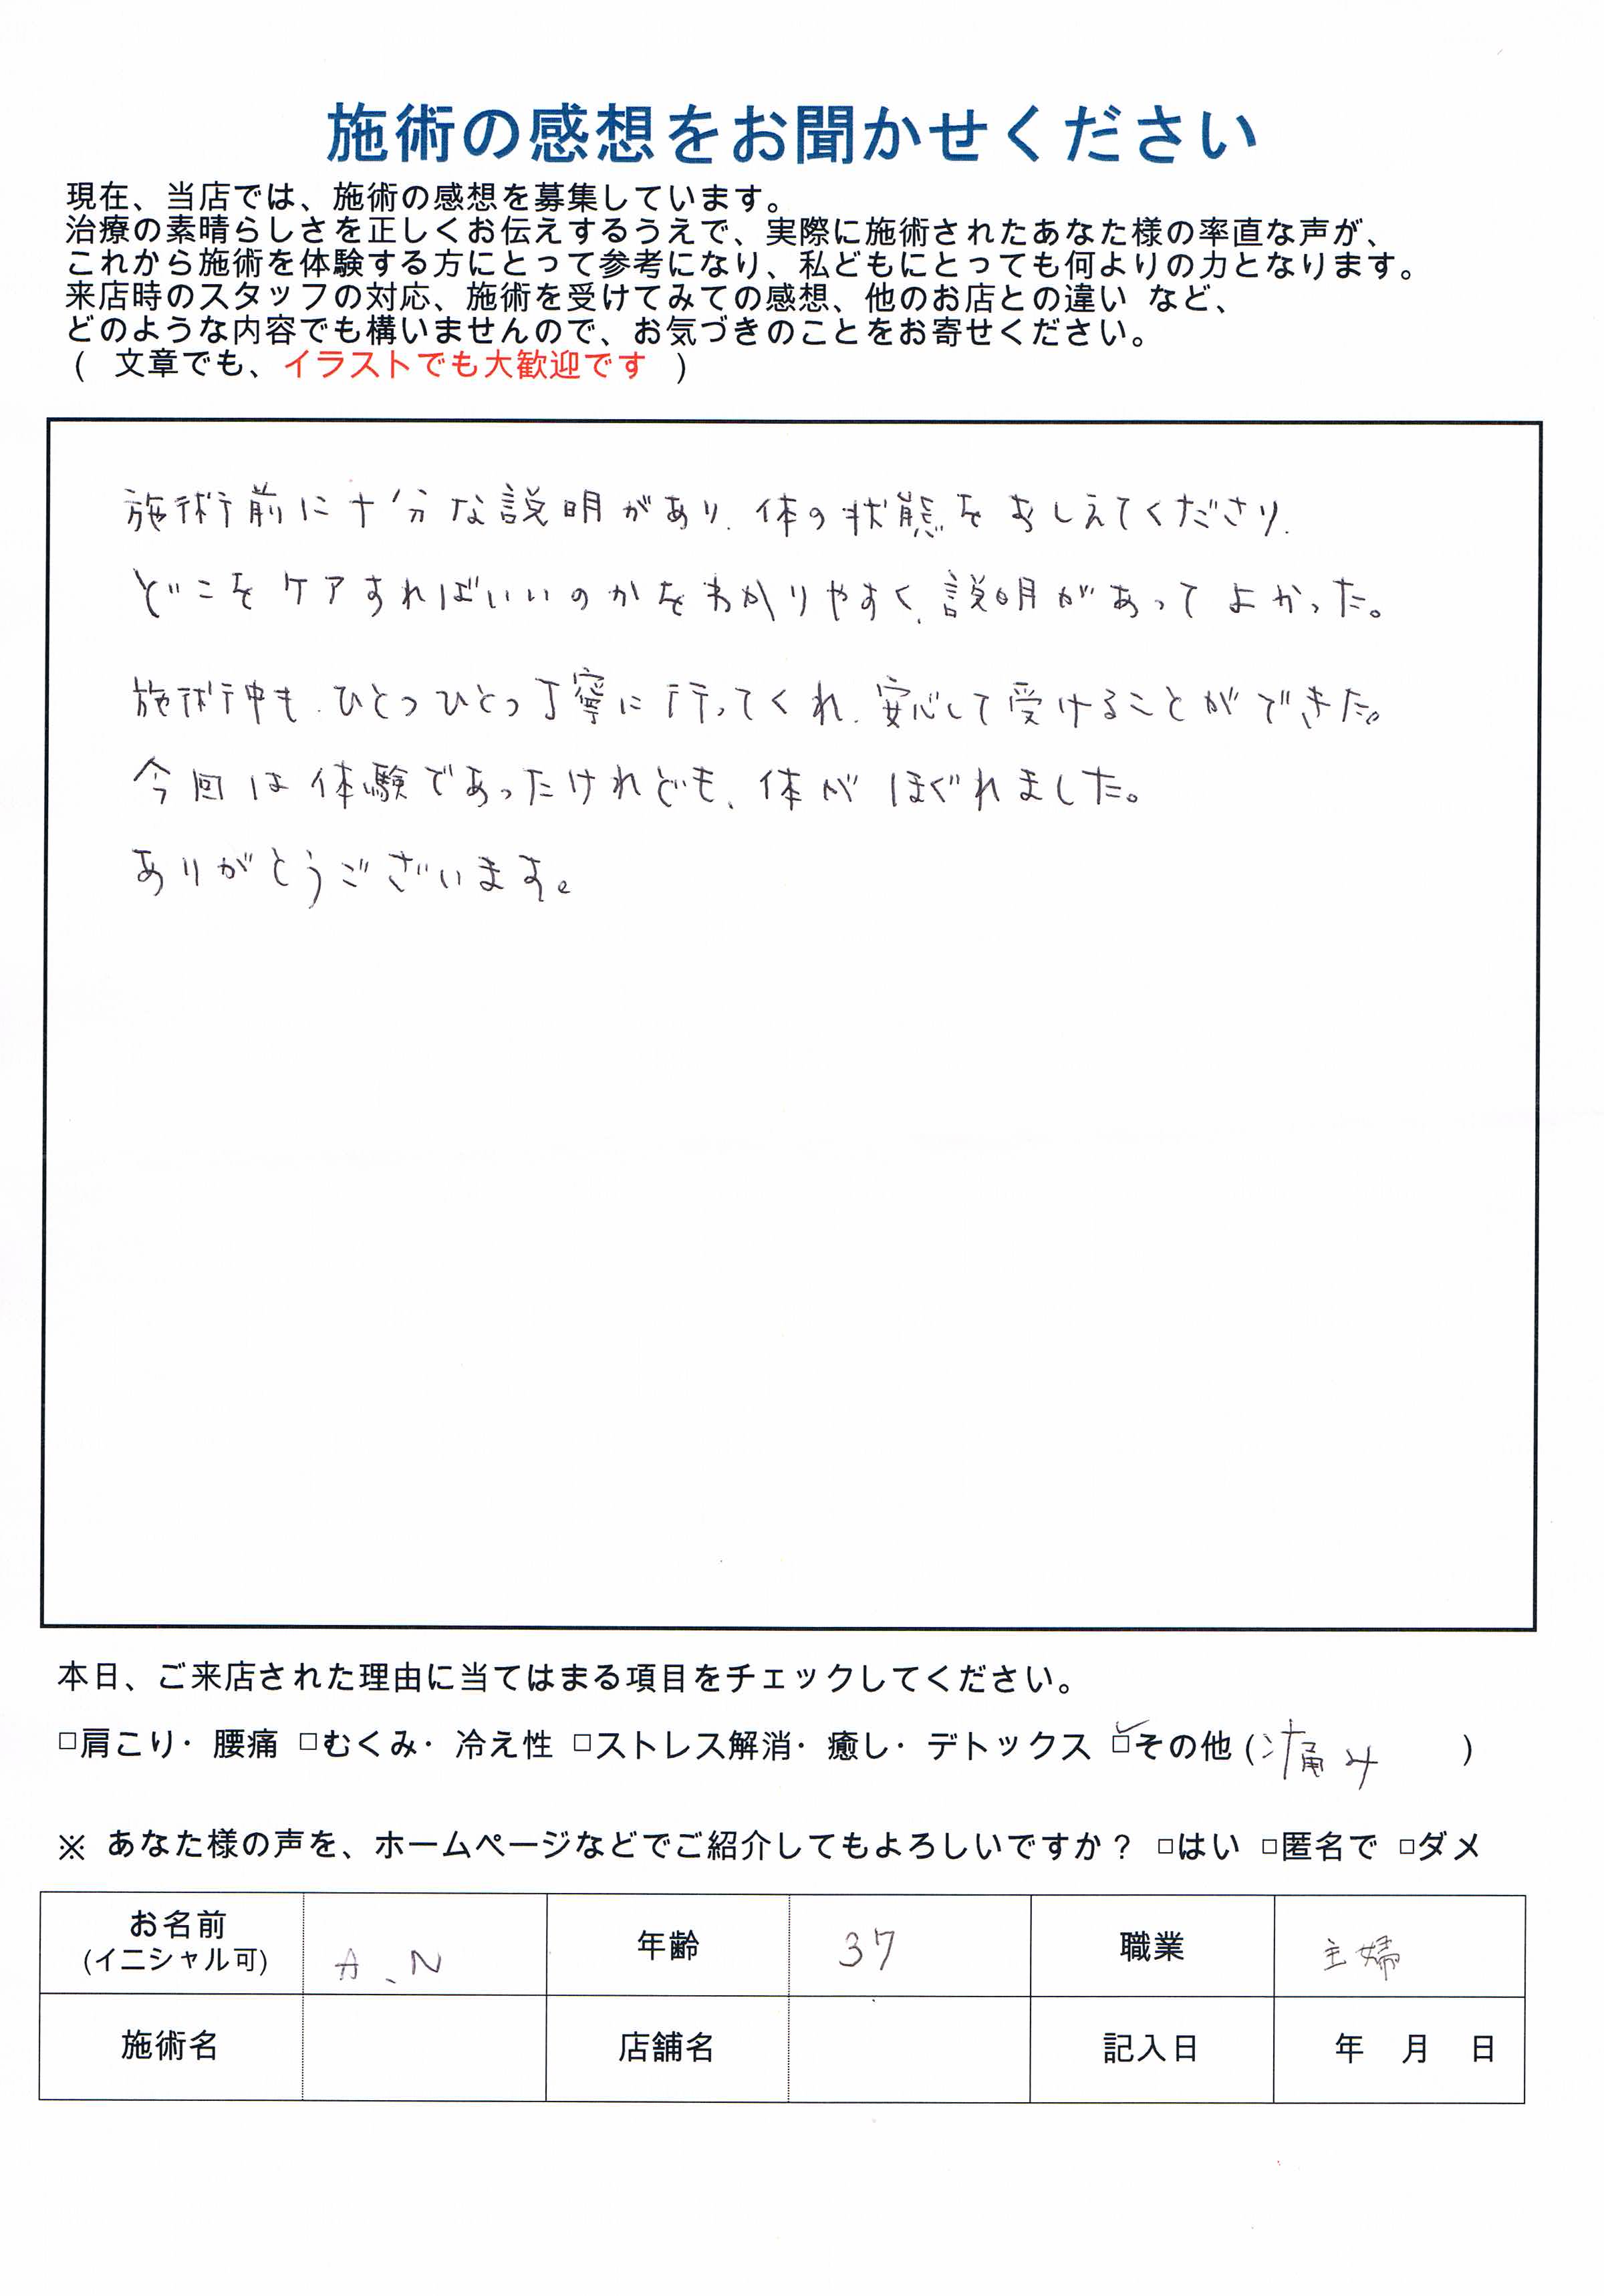 施術の感想をお聞かせください
現在、当店では、施術の感想を募集しています。
治療の素晴らしさを正しくお伝えするうえで、実際に施術されたあなた様の率直な声が、
これから施術を体験する方にとって参考になり、私どもにとっても何よりの力となります。
来店時のスタッフの対応、施術を受けてみての感想、他のお店との違い など、
どのような内容でも構いませんので、お気づきのことをお寄せください。
( 文章でも、イラストでも大歓迎です )
施術前に十分な説明があり、体の状態をおしえてくださり、
どこをケアすればいいのかをわかりやすく、説明があってよかった。
施術中も、ひとつひとつ丁寧に行ってくれ、安心して受けることができた。
今回は体験であったけれども、体がほぐれました。
ありがとうございます。
本日、ご来店された理由に当てはまる項目をチェックしてください。
□肩こり・腰痛 □むくみ・冷え性 □ストレス解消・癒し・デトックス ☑その他(痛み )
※ あなた様の声を、ホームページなどでご紹介してもよろしいですか？ □はい □匿名で □ダメ
お名前 (イニシャル可) A.N 年齢 37 職業 主婦
施術名 店舗名 記入日 年 月 日